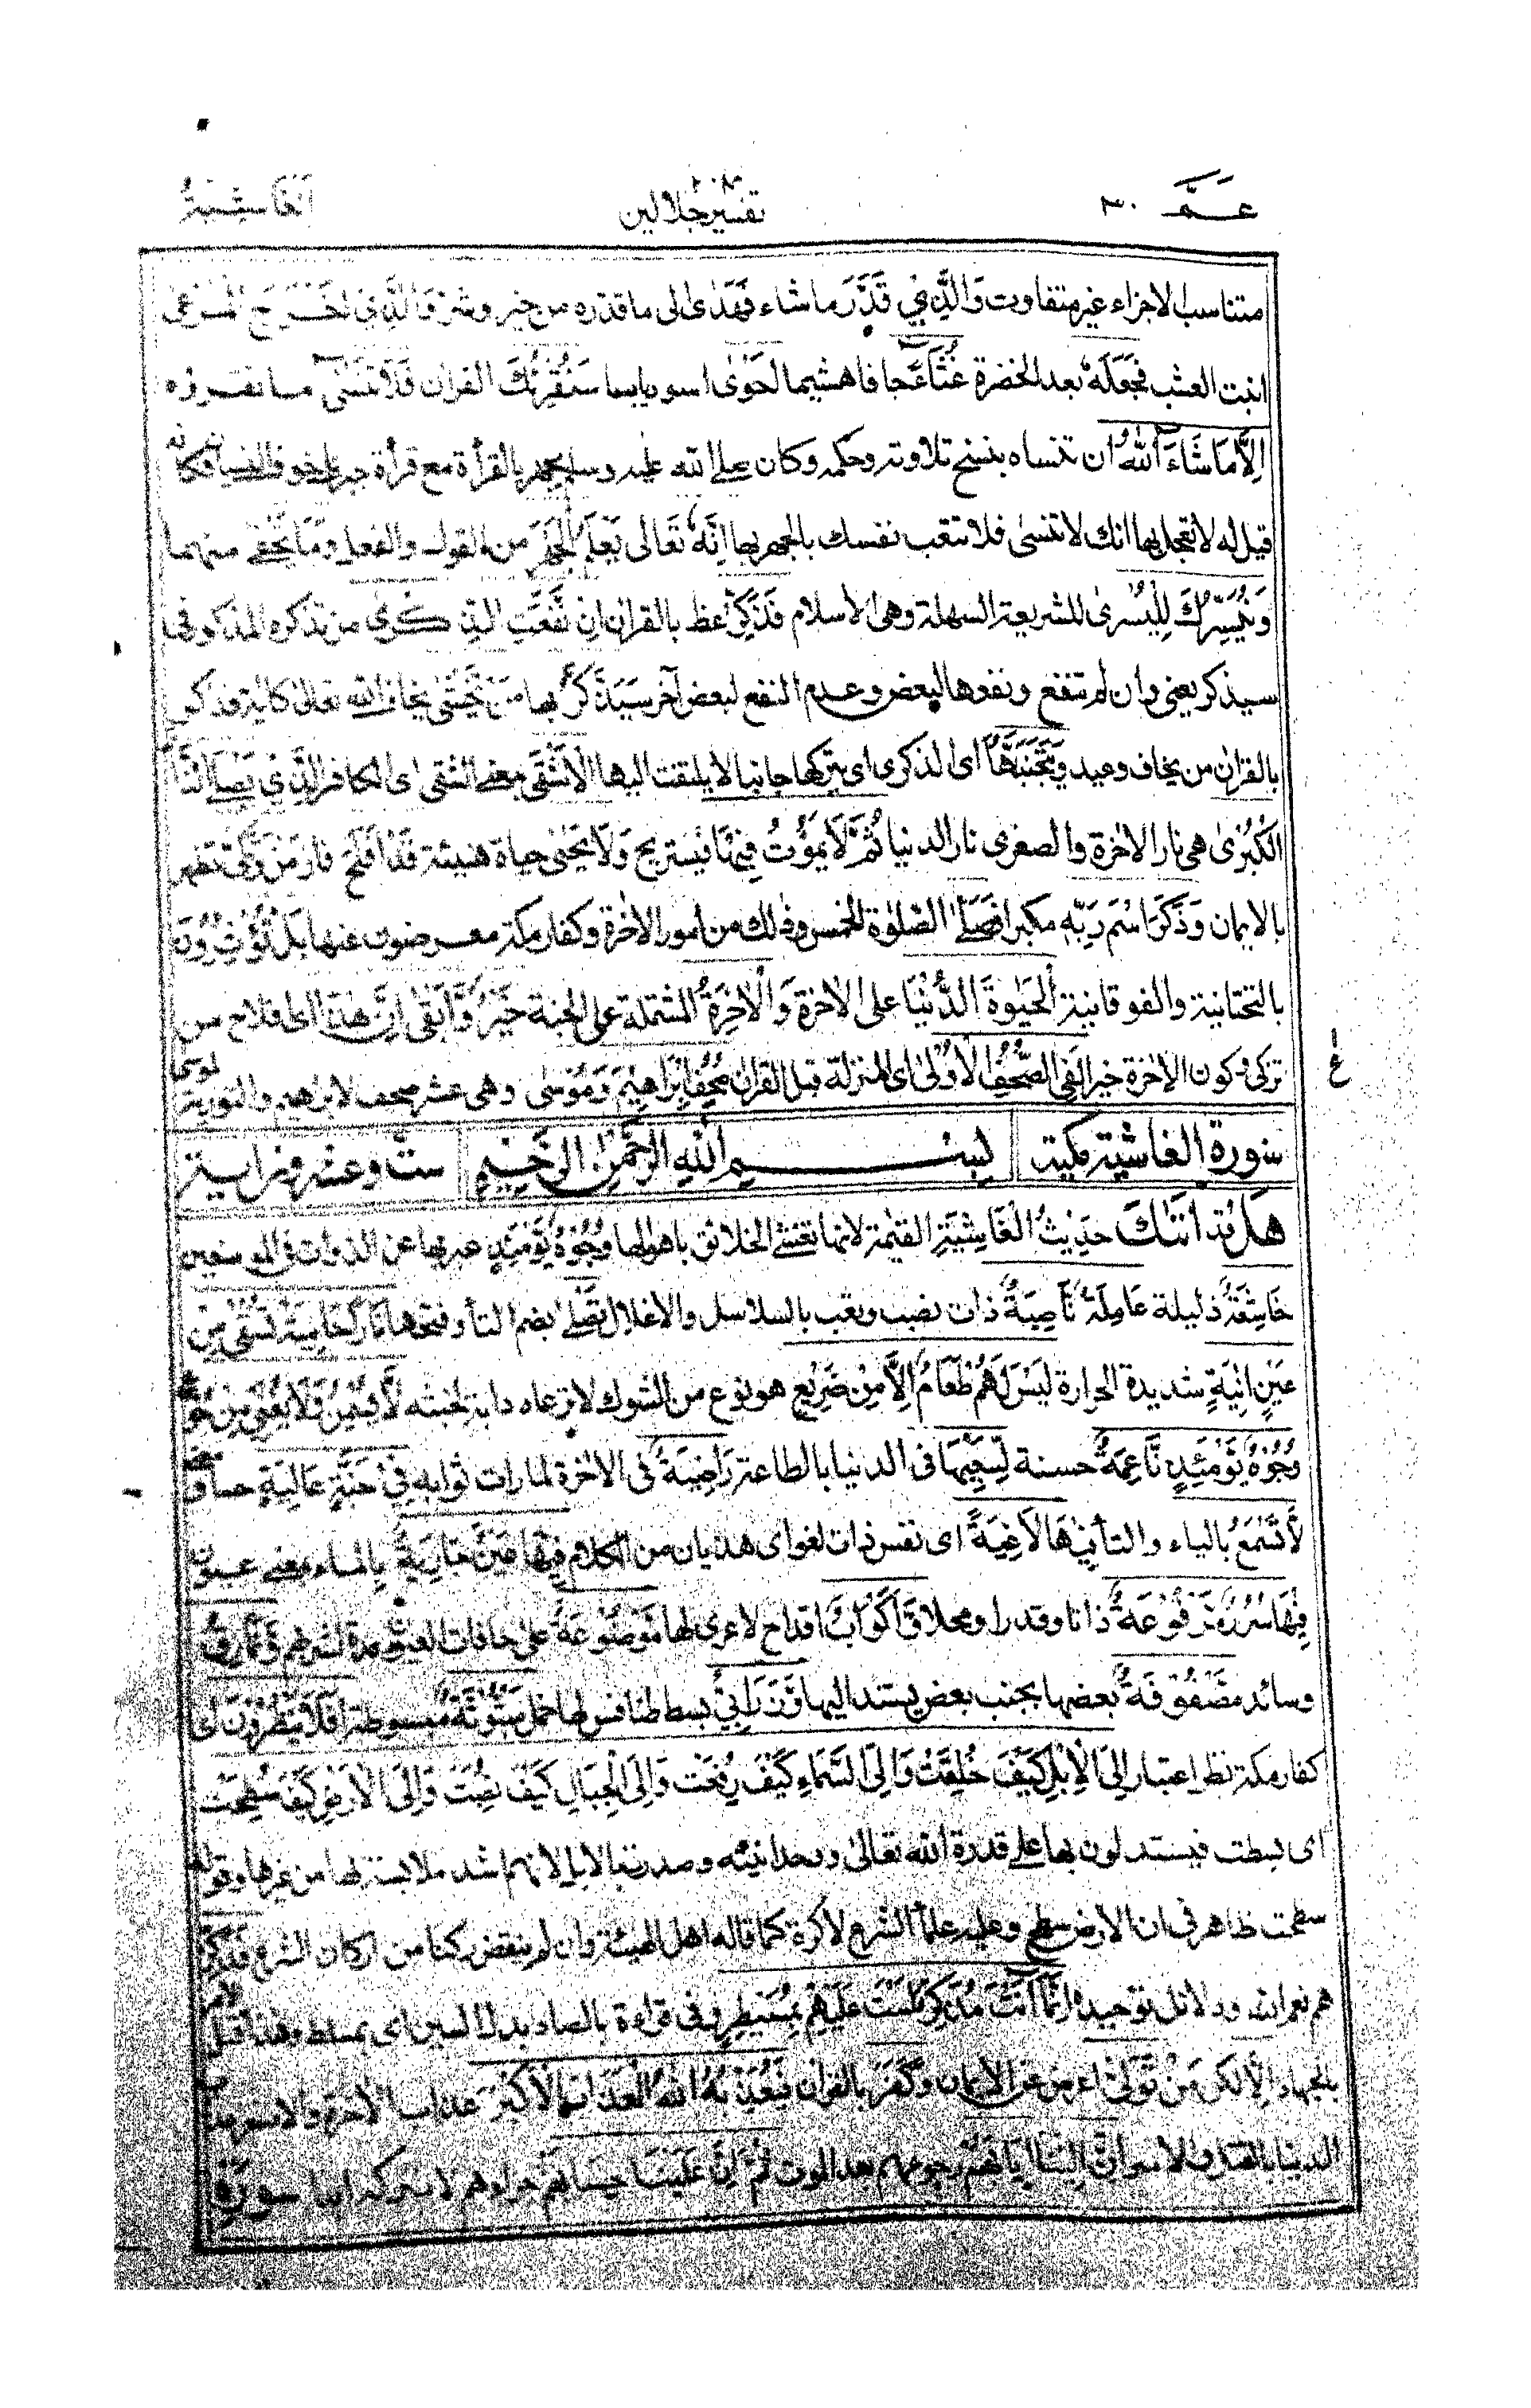 عـــمّ ٣٠ تفسير جلالين الغاشية
متناسب الاجزاء غير متفاوت وَالَّذِي قَدَّرَ ما شاء فَهَدٰى الى ما قدره من خير وشر وَالَّذِي اَخْرَجَ الْمَرْعٰى
انبت العشب فَجَعَلَهٗ بعد الخضرة غُثَاءً جافا هشيما اَحْوٰى اسود يابسا سَنُقْرِئُكَ القران فَلَا تَنْسٰى ما تقرؤه
اِلَّا مَا شَاءَ اللّٰهُ ان تنساه بنسخ تلاوته وحكمه وكان صلى الله عليه وسلم يجهر بالقرأة مع قرأة جبرئيل خوف النسيان فكانه
قيل له لا تعجل بها انك لا تنسى فلا تتعب نفسك بالجهر بها اِنَّهٗ تَعَالى يَعْلَمُ الْجَهْرَ من القول والفعل وَمَا يَخْفٰى منهما
وَنُيَسِّرُكَ لِلْيُسْرٰى للشريعة السهلة وهى الاسلام فَذَكِّرْ عظ بالقران اِنْ نَّفَعَتِ الذِّكْرٰى من تذكره المذكور فى
سيذكر يعنى وان لم تنفع ونفعها لبعض وعدم النفع لبعض آخر سَيَذَّكَّرُ بها مَنْ يَّخْشٰى يخاف الله تعالى كاية فذكر
بالقران من يخاف وعيد وَيَتَجَنَّبُهَا اى الذكرى اى يتركها جانبا لا يلتفت اليها الْاَشْقَى بمعنى الشقى اى الكافر الَّذِي يَصْلَى النَّارَ
الْكُبْرٰى هى نار الاخرة والصغرى نار الدنيا ثُمَّ لَا يَمُوْتُ فِيْهَا فيستريح وَلَا يَحْيٰى حياة هنيئة قَدْ اَفْلَحَ فاز مَنْ تَزَكّٰى تطهر
بالايمان وَذَكَرَ اسْمَ رَبِّهٖ مكبرا فَصَلّٰى الصلوة الخمس وذلك من امور الاخرة وكفار مكة معرضون عنها بَلْ تُؤْثِرُوْنَ
بالتحتانية والفوقانية الْحَيٰوةَ الدُّنْيَا على الاخرة وَالْاٰخِرَةُ المشتملة على الجنة خَيْرٌ وَّاَبْقٰى اِنَّ هٰذَا اى فلاح من
تزكى وكون الاخرة خيرا لَفِى الصُّحُفِ الْاُوْلٰى اى المنزلة قبل القران صُحُفِ اِبْرَاهِيْمَ وَمُوْسٰى وهى عشر صحف لابراهيم والتورية لموسى
سورة الغاشية مكية بسم الله الرحمن الرحيم ست وعشرون اية
هَلْ قد اَتٰىكَ حَدِيْثُ الْغَاشِيَةِ القيمة لانها تغشى الخلائق باهوالها وُجُوْهٌ يَّوْمَئِذٍ عبر بها عن الذوات فى الموضعين
خَاشِعَةٌ ذليلة عَامِلَةٌ نَّاصِبَةٌ ذات نصب وتعب بالسلاسل والاغلال تَصْلٰى بضم التا وفتحها نَارًا حَامِيَةً تُسْقٰى مِنْ
عَيْنٍ اٰنِيَةٍ شديدة الحرارة لَيْسَ لَهُمْ طَعَامٌ اِلَّا مِنْ ضَرِيْعٍ هو نوع من الشوك لا ترعاه دابة لخبثه لَّا يُسْمِنُ وَلَا يُغْنِيْ مِنْ جُوْعٍ
وُجُوْهٌ يَّوْمَئِذٍ نَّاعِمَةٌ حسنة لِّسَعْيِهَا فى الدنيا بالطاعة رَاضِيَةٌ فى الاخرة لما رات ثوابه فِيْ جَنَّةٍ عَالِيَةٍ حسا ومعنى
لَّا تَسْمَعُ بالياء والتاء فِيْهَا لَاغِيَةً اى نفس ذات لغو اى هذيان من الكلام فِيْهَا عَيْنٌ جَارِيَةٌ بالماء بمعنى عيون
فِيْهَا سُرُرٌ مَّرْفُوْعَةٌ ذاتا وقدرا ومحلا وَّاَكْوَابٌ اقداح لا عرى لها مَّوْضُوْعَةٌ على حافات العيون معدة لشربهم وَّنَمَارِقُ
وسائد مَصْفُوْفَةٌ بعضها بجنب بعض يستند اليها وَّزَرَابِيُّ بسط طنافس لها خمل مَبْثُوْثَةٌ مبسوطة اَفَلَا يَنْظُرُوْنَ اى
كفار مكة نظر اعتبار اِلَى الْاِبِلِ كَيْفَ خُلِقَتْ وَاِلَى السَّمَاءِ كَيْفَ رُفِعَتْ وَاِلَى الْجِبَالِ كَيْفَ نُصِبَتْ وَاِلَى الْاَرْضِ كَيْفَ سُطِحَتْ
اى بسطت فيستدلون بها على قدرة الله تعالى ووحدانيته وصدرت بالابل لانهم اشد ملابسة لها من غيرها وقوله
سطحت ظاهر فى ان الارض سطح وعليه علماء الشرع لا كرة كما قاله اهل الهيئة وان لم ينقض ركنا من اركان الشرع فَذَكِّرْ
هم نعم الله ودلائل توحيده اِنَّمَا اَنْتَ مُذَكِّرٌ لَسْتَ عَلَيْهِمْ بِمُسَيْطِرٍ وفى قراءة بالصاد بدل السين اى بمسلط وهذا قبل الامر
بالجهاد اِلَّا لكن مَنْ تَوَلّٰى اعرض عن الايمان وَكَفَرَ بالقران فَيُعَذِّبُهُ اللّٰهُ الْعَذَابَ الْاَكْبَرَ عذاب الاخرة والاصغر عذاب
الدنيا بالقتل والاسر اِنَّ اِلَيْنَا اِيَابَهُمْ رجوعهم بعد الموت ثُمَّ اِنَّ عَلَيْنَا حِسَابَهُمْ جزاءهم لا نتركه ابدا سورة